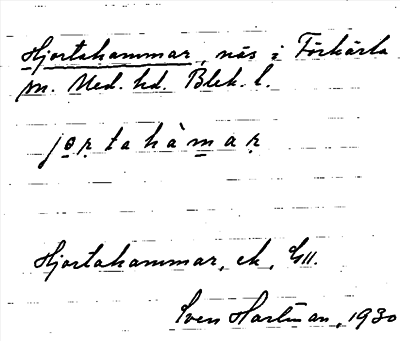 Hjortahammar, näs i Förkärla
sn. Med. hd. Blek. l.
jo̱ṛtahàm̱aṛ
Hjortahammar, ek.
Sven Hartman, 1930